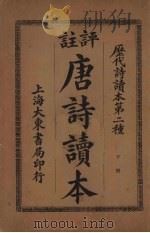 歷代詩讀本第二種
評註
唐詩讀本
上海大東書局印行